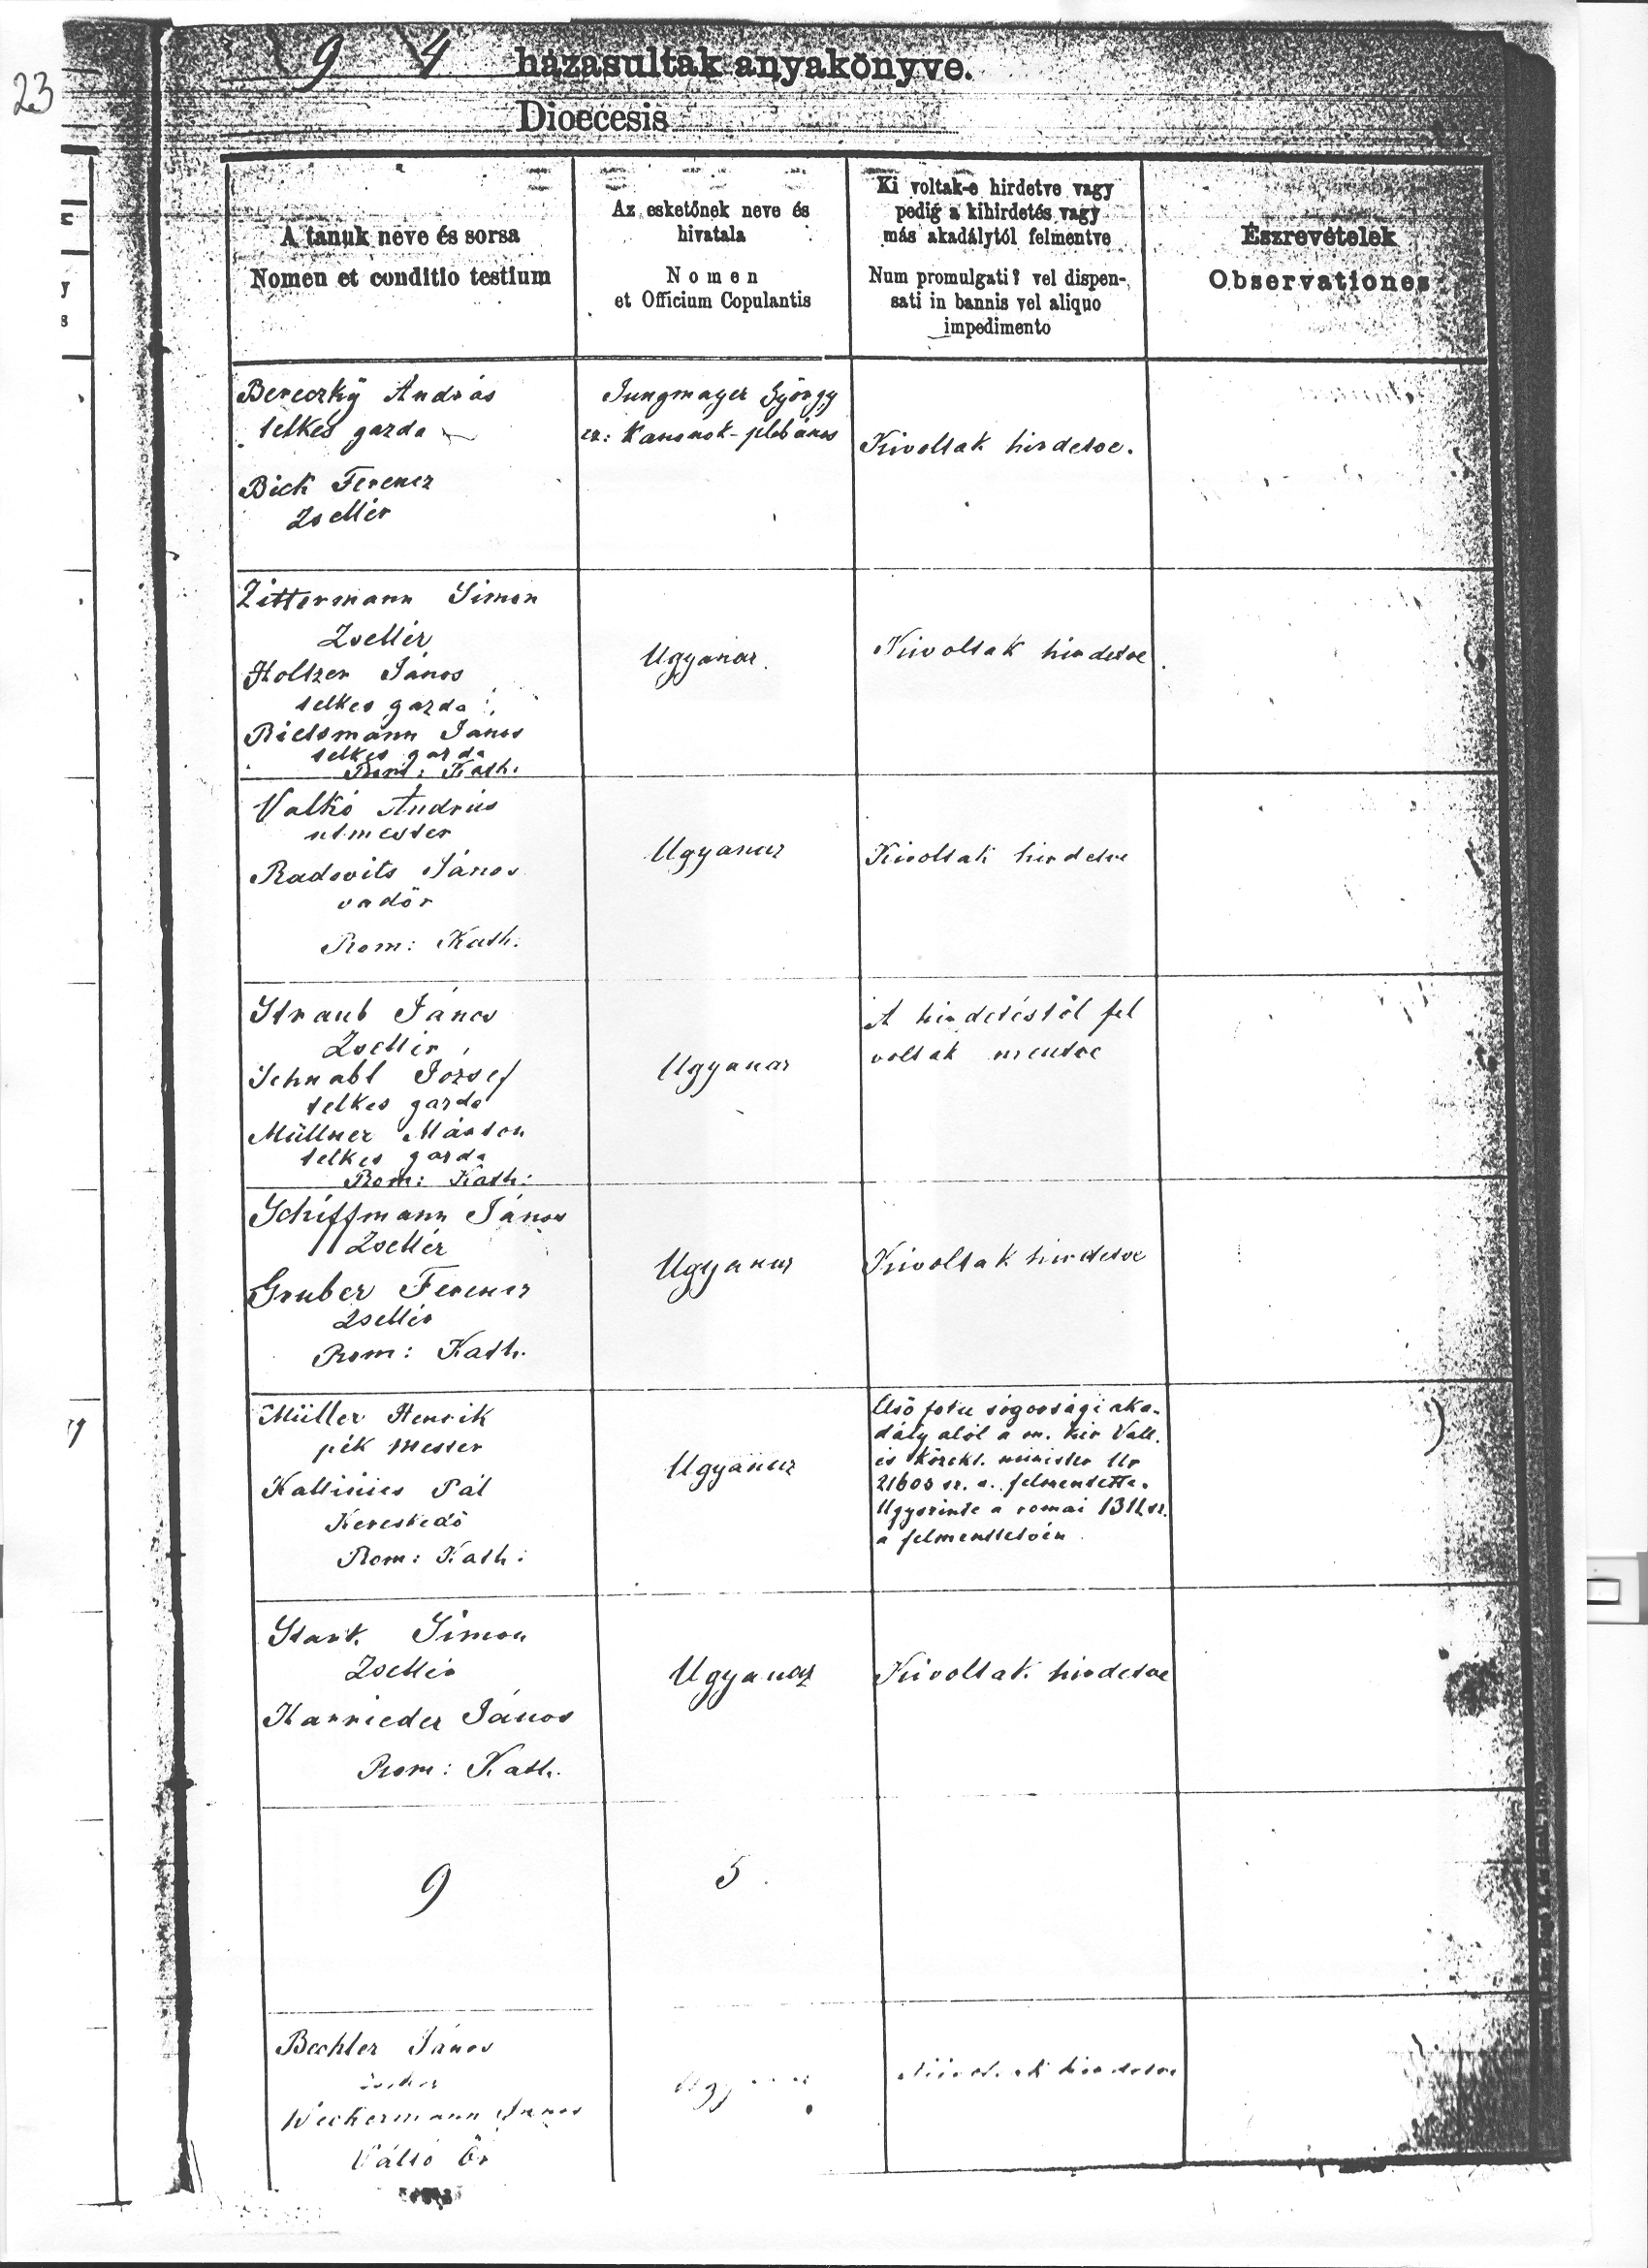 23
9 4 házasultak anyakönyve.
Dioecesis
A tanuk neve és sorsa
Nomen et conditio testium
Az esketőnek neve és
hivatala
Nomen
et Officium Copulantis
Ki voltak-e hirdetve vagy
pedig a kihirdetés vagy
más akadálytól felmentve
Num promulgati? vel dispen-
sati in bannis vel aliquo
impedimento
Észrevételek
Observationes
Bereczky András
telkes gazda
Bick Ferencz
Zsellér
Jungmayer György
cz: Kanonok-plébános
Kivoltak hirdetve.
Zittermann Simon
Zsellér
Holtzer János
telkes gazda
Rielsmann János
telkes gazda
Rom: Kath.
Ugyanaz.
Kivoltak hirdetve.
Valkó András
utmester
Radovits János
vadőr
Rom: Kath.
Ugyanaz
Kivoltak hirdetve
Straub János
Zsellér
Schnabl József
telkes gazda
Müllner Márton
telkes gazda
Rom: Kath:
Ugyanaz
A hirdetéstől fel
voltak mentve
Schiffmann János
Zsellér
Gruber Ferencz
Zsellér
Rom: Kath.
Ugyanaz
Kivoltak hirdetve
Müller Henrik
pék mester
Kallinies Pál
Kereskedő
Rom: Kath:
Ugyanaz
Első foku sógorsági aka-
dály alól a m. kir Vall.
és közokt. minister Ur
21603 sz. a. felmentette.
Ugyszinte a romai 1312 sz.
a felmentetvén.
Stark Simon
Zsellér
Harrieder János
Rom: Kath.
Ugyanaz
Kivoltak hirdetve
9
5.
Bechler János
Weckermann János
Váltó őr
Ugyanaz
Kivoltak hirdetve